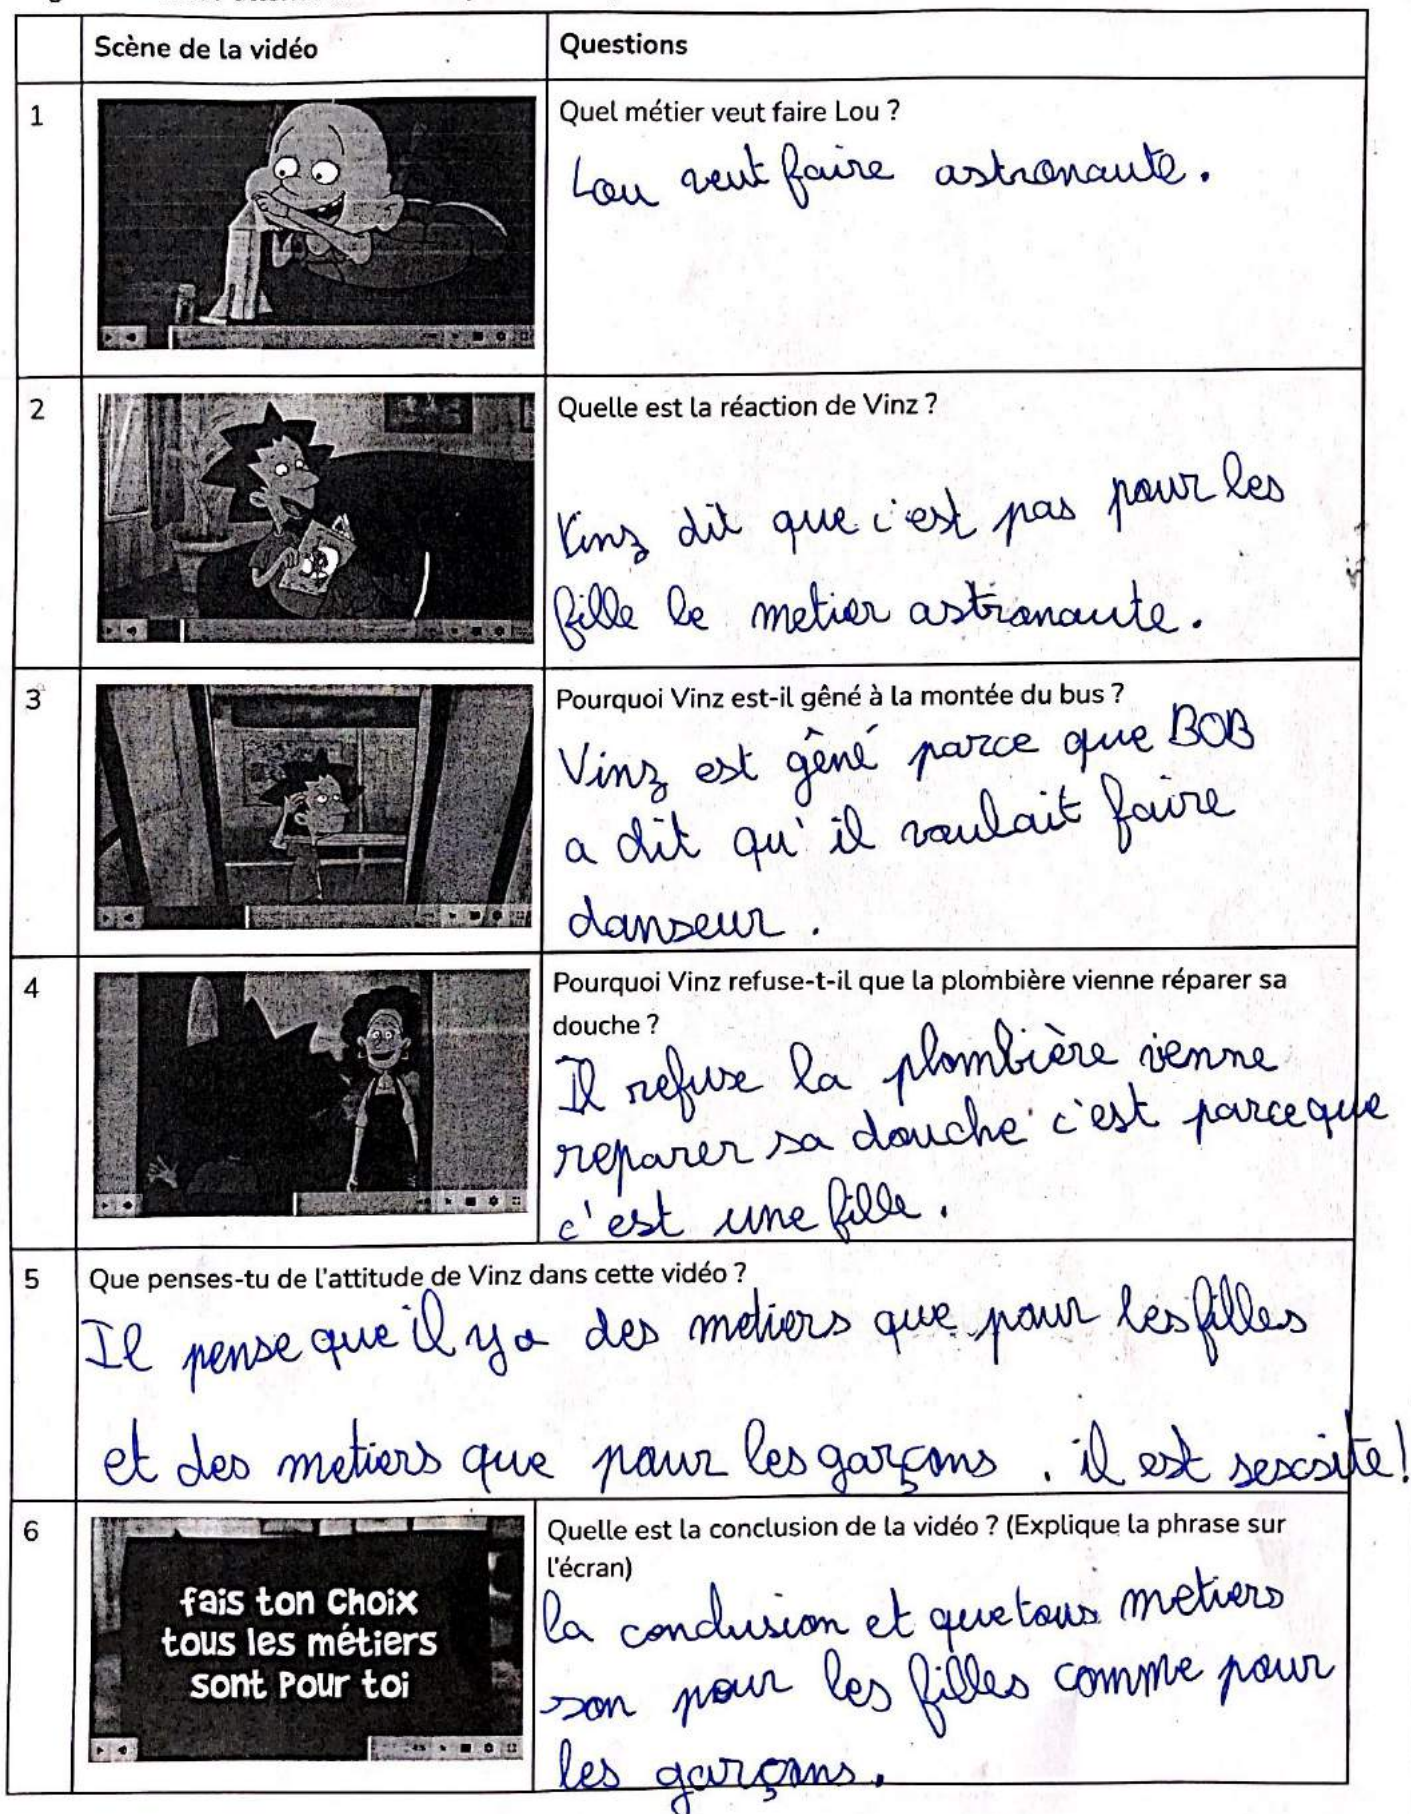 Scène de la vidéo
Questions
1
Quel métier veut faire Lou ?
Lou veut faire astronaute.
2
Quelle est la réaction de Vinz ?
Vinz dit que c'est pas pour les
fille le metier astronaute.
3
Pourquoi Vinz est-il gêné à la montée du bus ?
Vinz est gêné parce que BOB
a dit qu'il voulait faire
danseur.
4
Pourquoi Vinz refuse-t-il que la plombière vienne réparer sa
douche ?
Il refuse la plombière vienne
reparer sa douche c'est parce que
c'est une fille.
5
Que penses-tu de l'attitude de Vinz dans cette vidéo ?
Il pense que il y a des metiers que pour les filles
et des metiers que pour les garçons. il est sescsite!
6
fais ton choix
tous les métiers
sont pour toi
Quelle est la conclusion de la vidéo ? (Explique la phrase sur
l'écran)
la conclusion et que tous metiers
son pour les filles comme pour
les garçons.